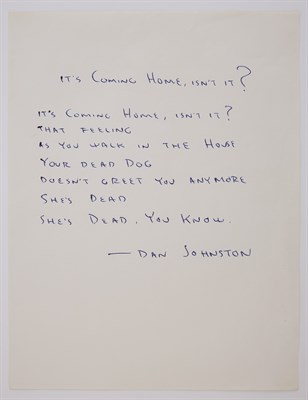 It's Coming Home, isn't it?
It's Coming Home, isn't it?
That feeling
As you walk in the House
Your Dead Dog
Doesn't greet you anymore
She's Dead
She's Dead, You Know.
— Dan Johnston